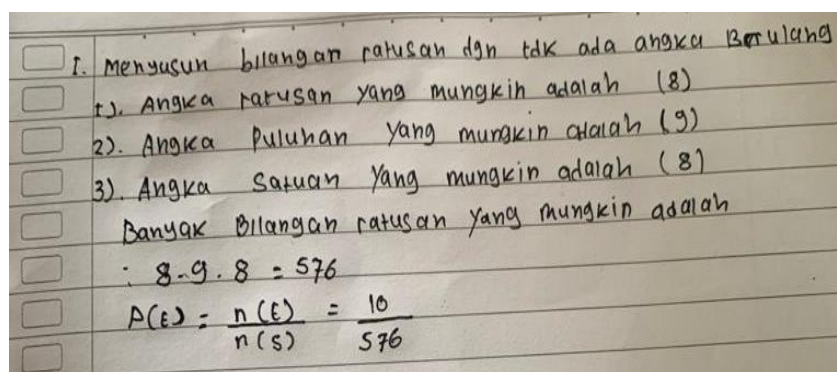 I. Menyusun bilangan ratusan dgn tdk ada angka Berulang
1). Angka ratusan yang mungkin adalah (8)
2). Angka Puluhan yang mungkin adalah (9)
3). Angka Satuan Yang mungkin adalah (8)
Banyak Bilangan ratusan yang mungkin adalah
: 8.9.8 = 576
P(E) = n(E)/n(S) = 10/576